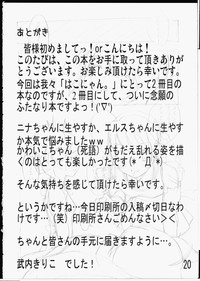 あとがき
皆様初めましてっ！orこんにちは！
このたびは、この本をお手に取って頂きありが
とうございます。お楽しみ頂けたら幸いです。
今回は我々「はこにゃん。」にとって2冊目の
本なのですが、2冊目にして、ついに念願の
ふたなり本ですよっ！(‘∇‘)
ニナちゃんに生やすか、エルスちゃんに生やす
か本気で悩みました…。
かわいこちゃん（死語）がもだえ乱れる姿を描
くのはとっても楽しかったです(*´Д｀*)
そんな気持ちを感じて頂けたら幸いです。
というかですね…今日印刷所の入稿〆切日なわ
けです…（笑）印刷所さんごめんなさい＞＜
ちゃんと皆さんの手元に届きますように…。
武内きりこ　でした！
20